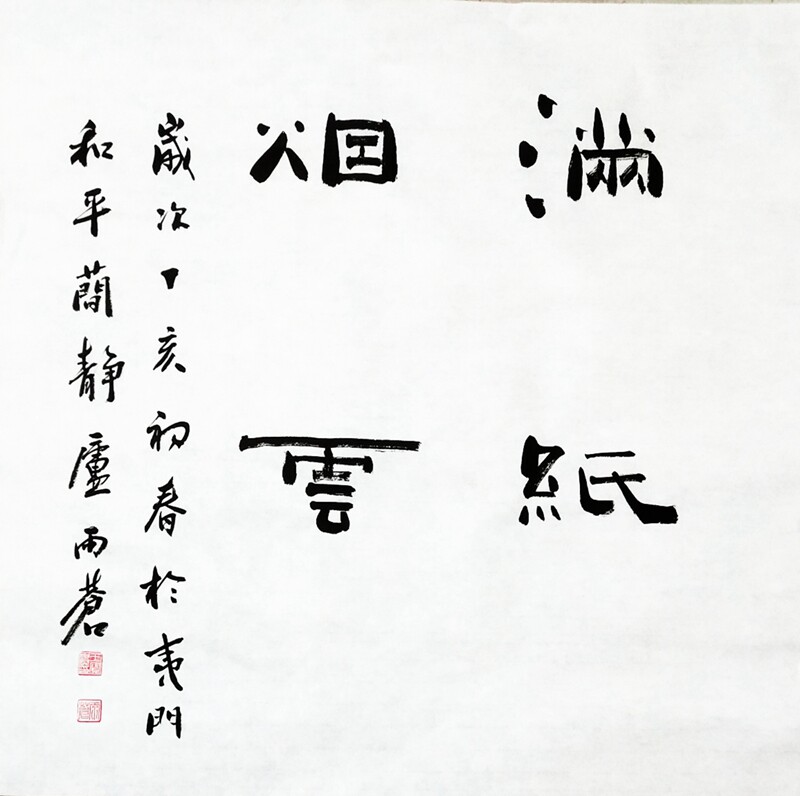 滿紙
烟雲
歲次丁亥初春於夷門
和平蕳靜廬雨蒼